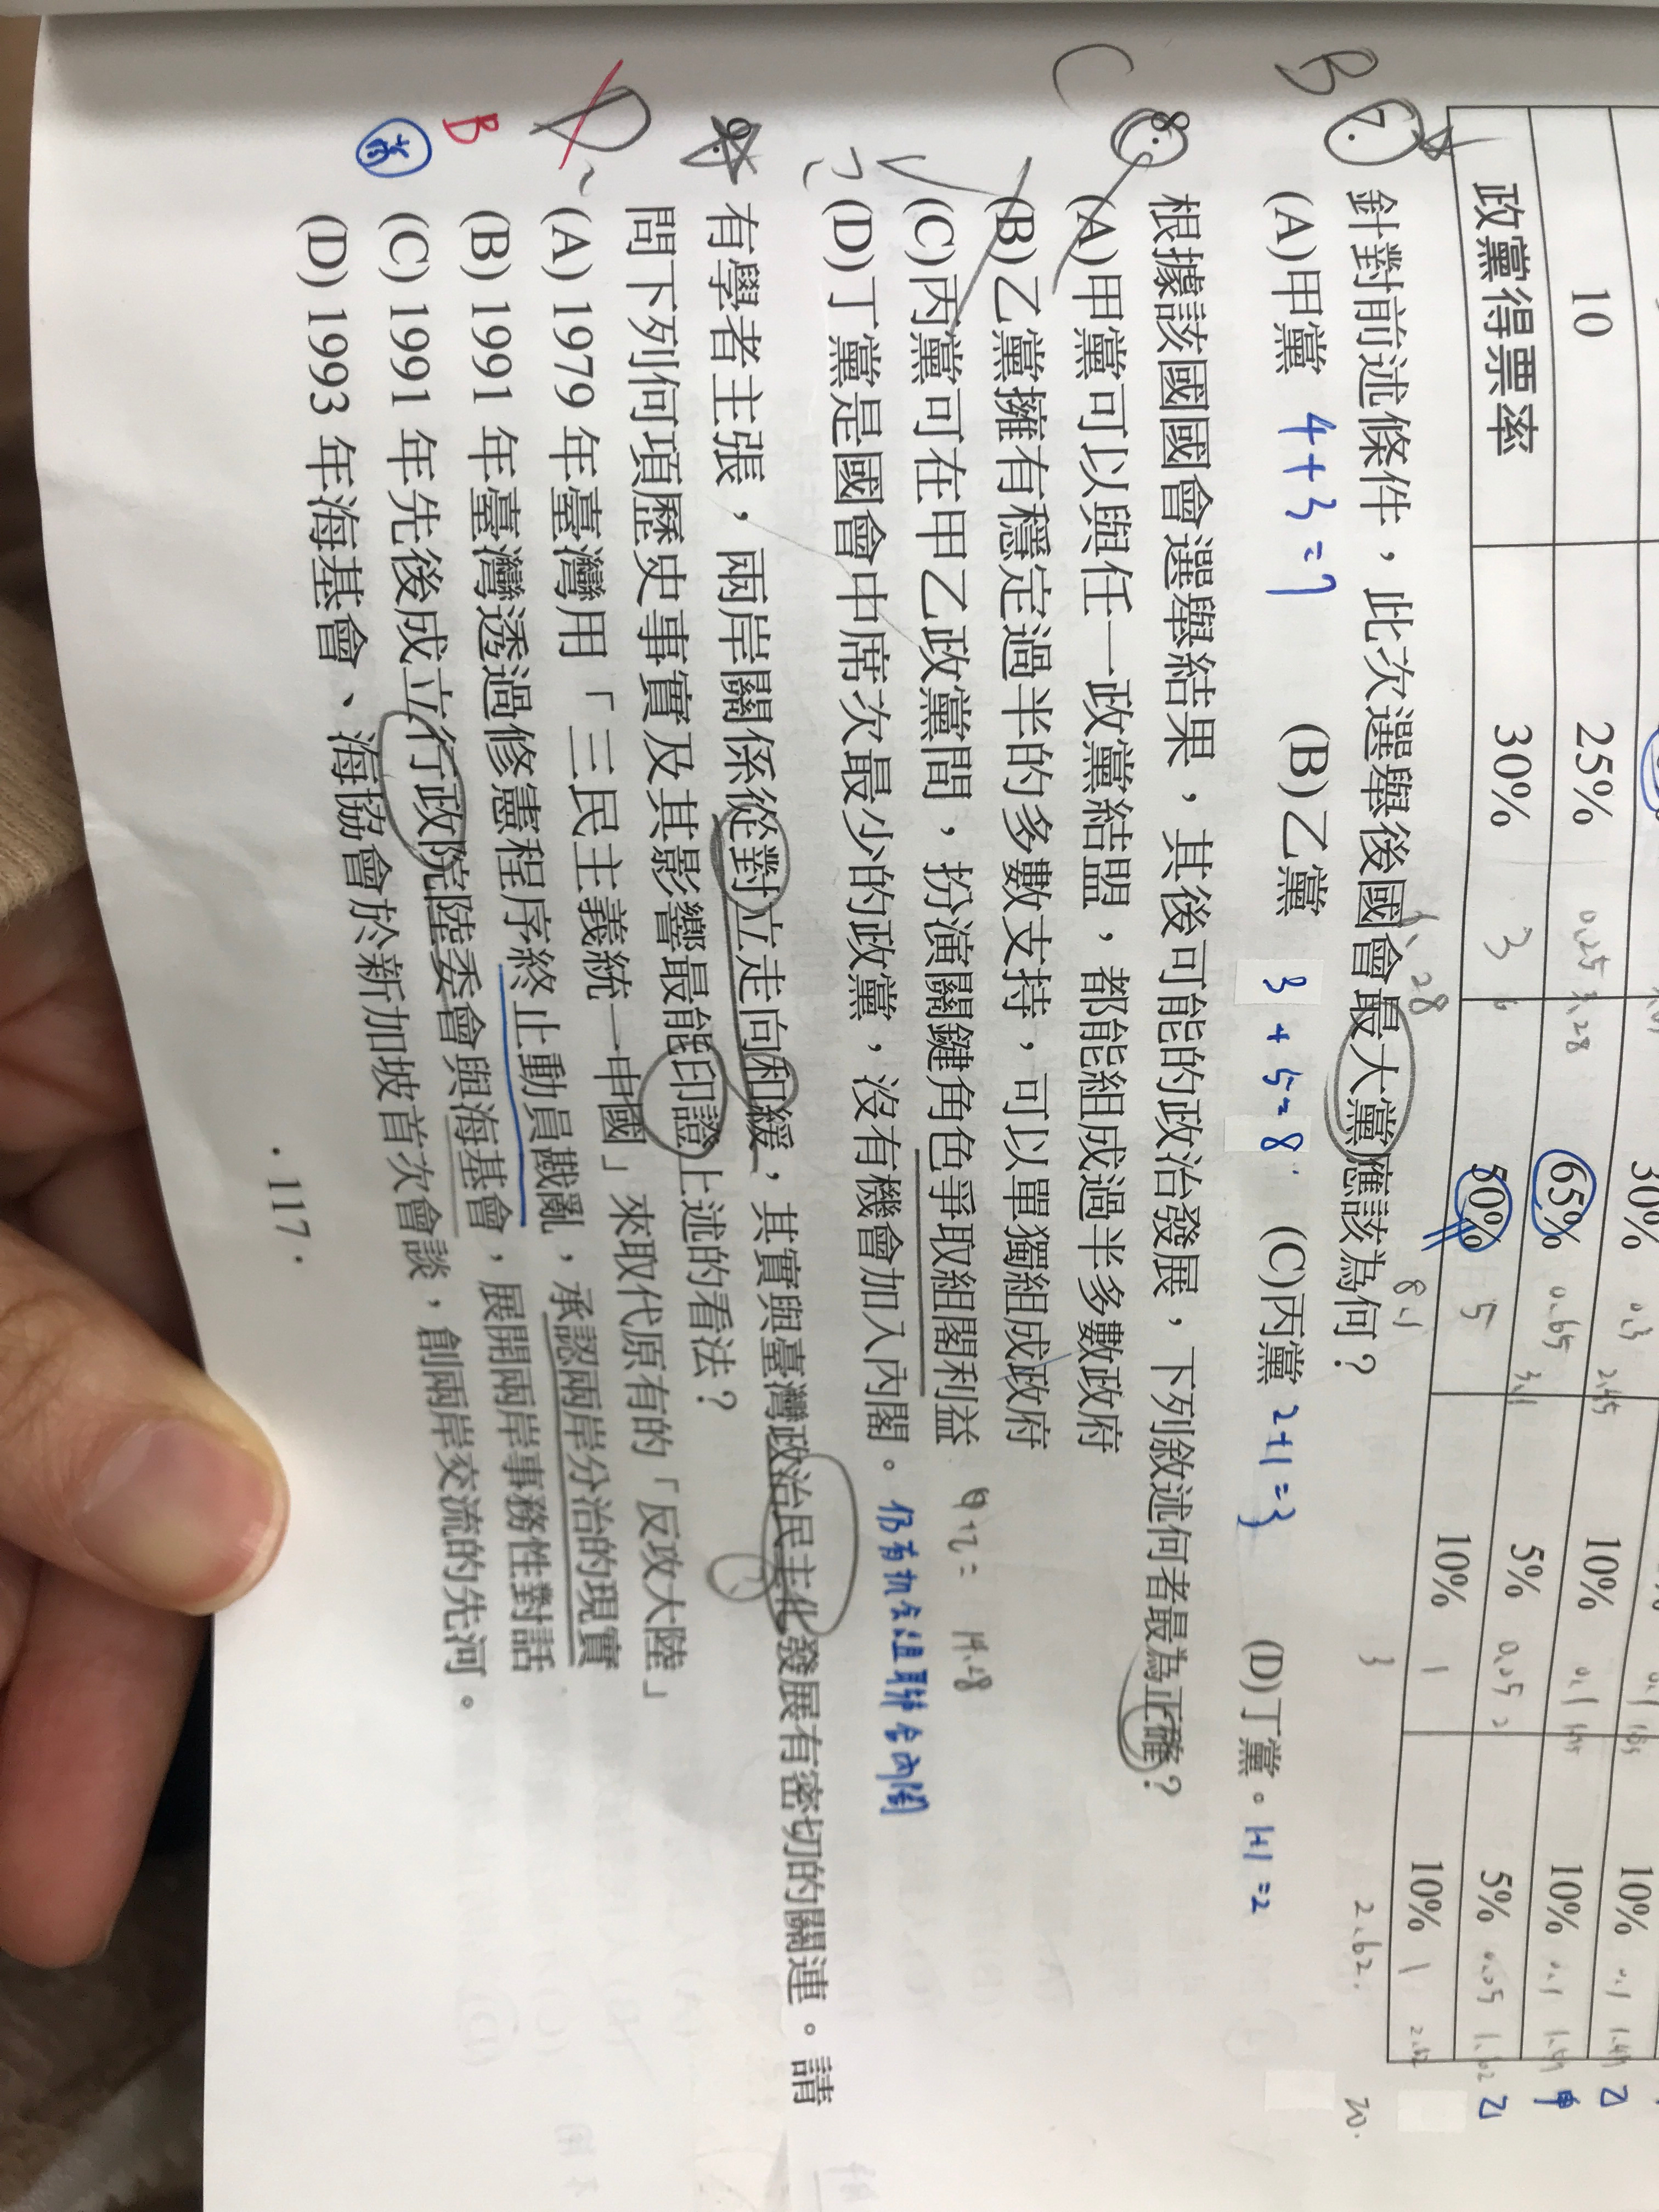 30% 0.3 10% 0.1 10% 0.1 乙
10 25% 0.25 65% 0.65 10% 0.1 10% 0.1 甲
政黨得票率 30% 3 50% 5 10% 1 10% 1
5% 0.05 5% 0.05 乙
28 8.1 3 2.62. 20.
B 7. 針對前述條件，此次選舉後國會最大黨應該為何？
(A)甲黨 4+3=7 (B)乙黨 3+5=8 (C)丙黨 2+1=3 (D)丁黨。1+1=2
C 8. 根據該國國會選舉結果，其後可能的政治發展，下列敘述何者最為正確？
(A)甲黨可以與任一政黨結盟，都能組成過半多數政府
(B)乙黨擁有穩定過半的多數支持，可以單獨組成政府
(C)丙黨可在甲乙政黨間，扮演關鍵角色爭取組閣利益 甲+乙=
(D)丁黨是國會中席次最少的政黨，沒有機會加入內閣。仍有机会组聯合內閣
D 9. 有學者主張，兩岸關係從對立走向和緩，其實與臺灣政治民主化發展有密切的關連。請
問下列何項歷史事實及其影響最能印證上述的看法？
(A) 1979 年臺灣用「三民主義統一中國」來取代原有的「反攻大陸」
B (B) 1991 年臺灣透過修憲程序終止動員戡亂，承認兩岸分治的現實
(C) 1991 年先後成立行政院陸委會與海基會，展開兩岸事務性對話
(D) 1993 年海基會、海協會於新加坡首次會談，創兩岸交流的先河。
·117·